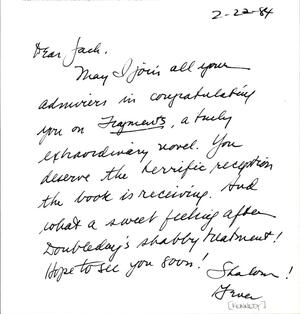 2-22-84
Dear Jack.
May I join all your
admirers in congratulating
you on
, a truly
extraordinary novel. You
deserve the terrific reception
the book is receiving. And
what a sweet feeling after
Doubleday's shabby treatment!
Hope to see you soon!
Shalom!